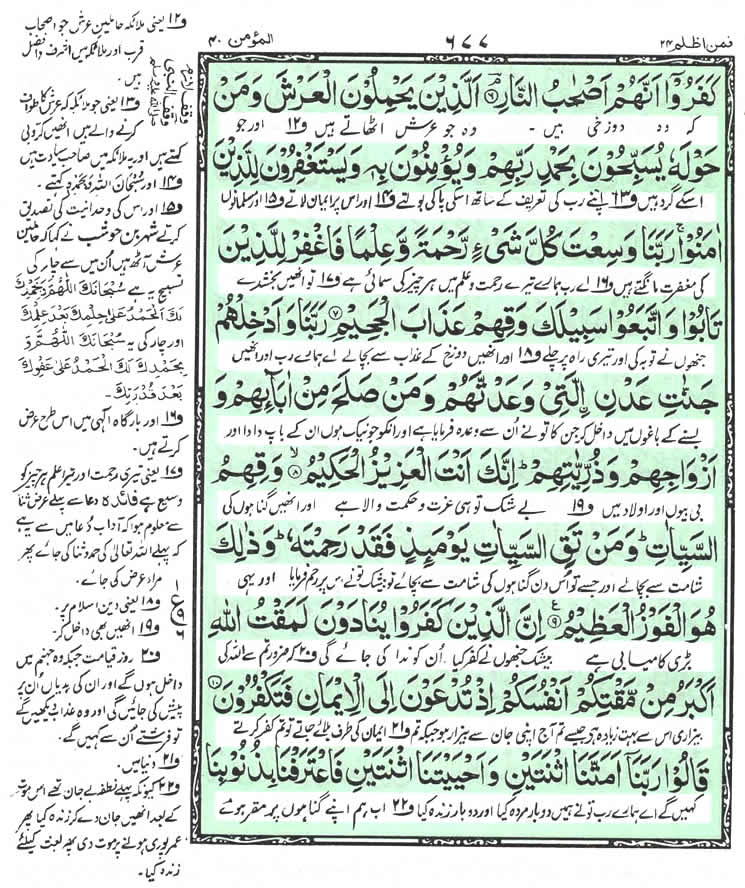 فمن اظلم ۲۴
۶۷۷
المؤمن ۴۰
كَفَرُوْۤا اَنَّهُمْ اَصْحٰبُ النَّارِ ۘ۝۶ اَلَّذِیْنَ یَحْمِلُوْنَ الْعَرْشَ وَمَنْ
کہ وہ دوزخی ہیں۔ وہ جو عرش اٹھاتے ہیں و۱۲ اور جو
حَوْلَهٗ یُسَبِّحُوْنَ بِحَمْدِ رَبِّهِمْ وَیُؤْمِنُوْنَ بِهٖ وَیَسْتَغْفِرُوْنَ لِلَّذِیْنَ
اسکے گرد ہیں و۱۳ اپنے رب کی تعریف کے ساتھ اسکی پاکی بولتے و۱۴ اور اس پر ایمان لاتے و۱۵ اور مسلمانوں
اٰمَنُوْا ۚ رَبَّنَا وَسِعْتَ كُلَّ شَیْءٍ رَّحْمَةً وَّعِلْمًا فَاغْفِرْ لِلَّذِیْنَ
کی مغفرت مانگتے ہیں و۱۶ اے رب ہمارے تیرے رحمت و علم میں ہر چیز کی سمائی ہے و۱۷ تو انھیں بخشدے
تَابُوْا وَاتَّبَعُوْا سَبِیْلَكَ وَقِهِمْ عَذَابَ الْجَحِیْمِ ۝۷ رَبَّنَا وَاَدْخِلْهُمْ
جنھوں نے توبہ کی اور تیری راہ پر چلے و۱۸ اور انھیں دوزخ کے عذاب سے بچالے اے ہمارے رب اور انھیں
جَنّٰتِ عَدْنِ ۣالَّتِیْ وَعَدْتَّهُمْ وَمَنْ صَلَحَ مِنْ اٰبَآىِٕهِمْ وَ
بسنے کے باغوں میں داخل کر جن کا تو نے اُن سے وعدہ فرمایا ہے اور انکو جو نیک ہوں ان کے باپ دادا اور
اَزْوَاجِهِمْ وَذُرِّیّٰتِهِمْ ؕ اِنَّكَ اَنْتَ الْعَزِیْزُ الْحَكِیْمُ ۙ۝۸ وَقِهِمُ
بی بیوں اور اولاد میں و۱۹ بے شک تو ہی عزت و حکمت والا ہے اور انھیں گناہوں کی
السَّیِّاٰتِ ؕ وَمَنْ تَقِ السَّیِّاٰتِ یَوْمَىِٕذٍ فَقَدْ رَحِمْتَهٗ ؕ وَذٰلِكَ
شامت سے بچالے اور جسے تو اس دن گناہوں کی شامت سے بچائے تو بیشک تو نے اس پر رحم فرمایا اور یہی
هُوَ الْفَوْزُ الْعَظِیْمُ ۠۝۹ اِنَّ الَّذِیْنَ كَفَرُوْا یُنَادَوْنَ لَمَقْتُ اللّٰهِ
بڑی کامیابی ہے بیشک جنھوں نے کفر کیا اُن کو ندا کی جائے گی و۲۰ کہ ضرور تم سے اللہ کی
اَكْبَرُ مِنْ مَّقْتِكُمْ اَنْفُسَكُمْ اِذْ تُدْعَوْنَ اِلَی الْاِیْمَانِ فَتَكْفُرُوْنَ ۝۱۰
بیزاری اس سے بہت زیادہ ہے جیسے تم آج اپنی جان سے بیزار ہو جبکہ تم و۲۱ ایمان کی طرف بلائے جاتے تو تم کفر کرتے
قَالُوْا رَبَّنَاۤ اَمَتَّنَا اثْنَتَیْنِ وَاَحْیَیْتَنَا اثْنَتَیْنِ فَاعْتَرَفْنَا بِذُنُوْبِنَا
کہیں گے اے ہمارے رب تو نے ہمیں دوبار مردہ کیا اور دوبار زندہ کیا و۲۲ اب ہم اپنے گناہوں پر مقر ہوئے
و۱۲ یعنی ملائکہ حاملین عرش جو اصحاب
قرب اور ملائکہ میں اشرف و افضل
ہیں۔
و۱۳ یعنی جو ملائکہ کہ عرش کا طواف
کرنے والے ہیں انھیں کروبی
کہتے ہیں اور یہ ملائکہ میں صاحب سیادت ہیں
و۱۴ اور سُبْحَانَ اللہِ وَبِحَمْدِہٖ کہتے۔
و۱۵ اور اس کی وحدانیت کی تصدیق
کرتے شہر بن حوشب نے کہا کہ حاملین
عرش آٹھ ہیں اُن میں سے چار کی
تسبیح یہ ہے سُبْحَانَكَ اللّٰهُمَّ وَبِحَمْدِكَ
لَكَ الْحَمْدُ عَلٰی حِلْمِكَ بَعْدَ عِلْمِكَ
اور چار کی یہ سُبْحَانَكَ اللّٰهُمَّ وَ
بِحَمْدِكَ لَكَ الْحَمْدُ عَلٰی عَفْوِكَ
بَعْدَ قُدْرَتِكَ۔
و۱۶ اور بارگاہ الٰہی میں اس طرح عرض
کرتے ہیں۔
و۱۷ یعنی تیری رحمت اور تیرا علم ہر چیز کو
وسیع ہے فائدہ دعا سے پہلے عرض ثنا
سے معلوم ہوا کہ آداب دُعا میں سے یہ ہے
کہ پہلے اللہ تعالیٰ کی حمد و ثنا کی جائے پھر
مراد عرض کی جائے۔
و۱۸ یعنی دین اسلام پر۔
و۱۹ انھیں بھی داخل کر۔
و۲۰ روز قیامت جبکہ وہ جہنم میں
داخل ہوں گے اور ان کی بدیاں اُن پر
پیش کی جائیں گی اور وہ عذاب دیکھیں گے
تو فرشتے اُن سے کہیں گے۔
و۲۱ دنیا میں۔
و۲۲ کیونکہ پہلے نطفہ بے جان تھے اس موت
کے بعد انھیں جان دے کر زندہ کیا پھر
عمر پوری ہونے پر موت دی پھر بعث کیلئے
زندہ کیا۔
ع